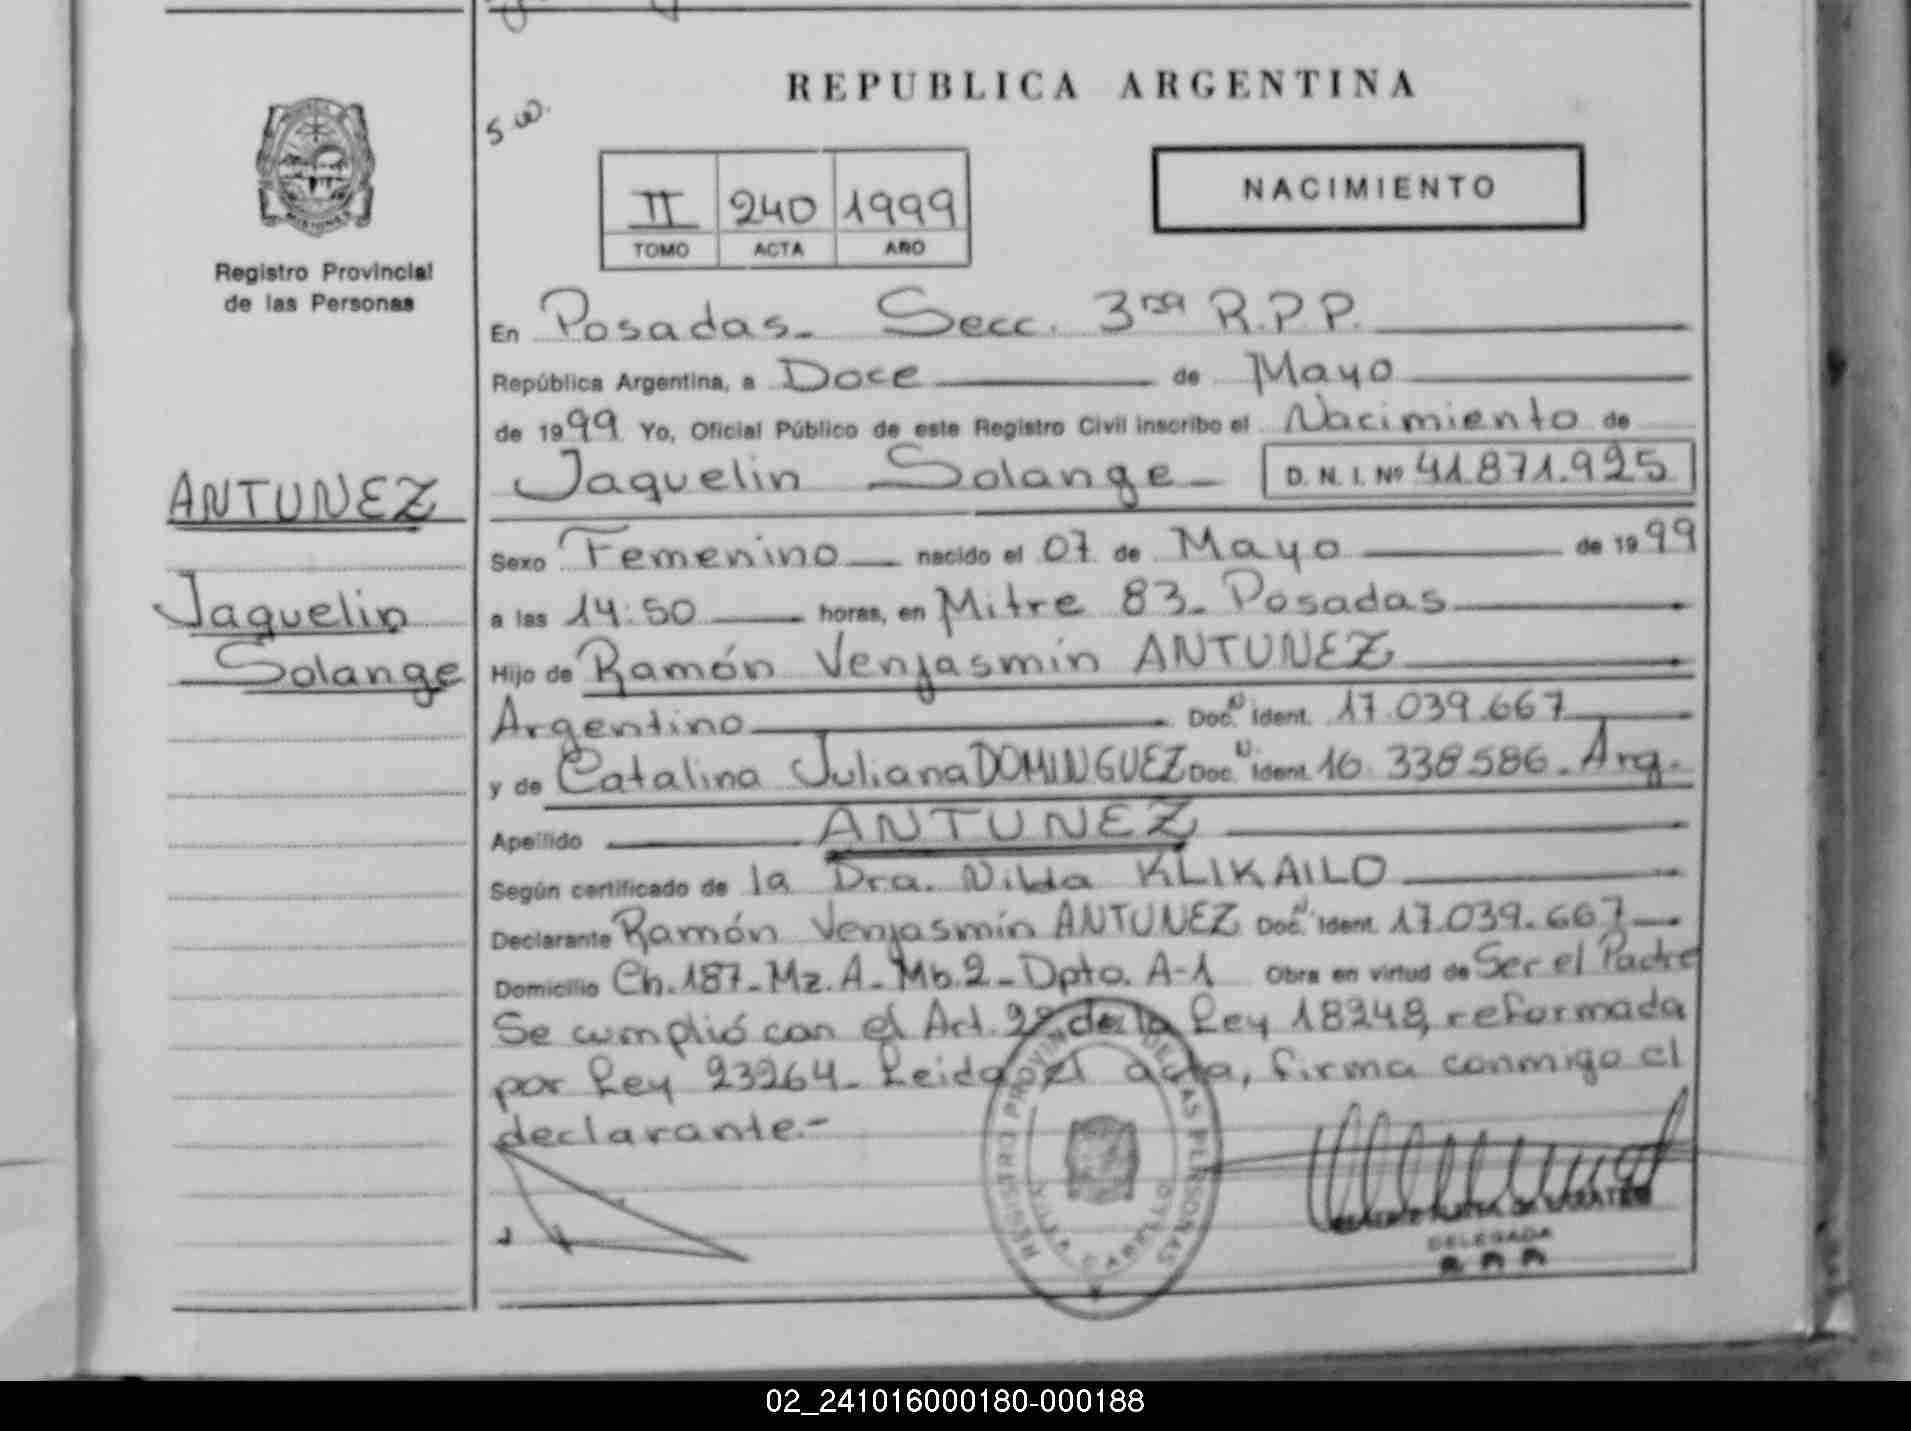 REPUBLICA ARGENTINA
s.w.
II 240 1999
TOMO ACTA AÑO
NACIMIENTO
MISIONES
Registro Provincial
de las Personas
En Posadas - Secc. 3ra R.P.P.
República Argentina, a Doce de Mayo
de 1999 Yo, Oficial Público de este Registro Civil inscribo el Nacimiento de
Jaquelin Solange - D. N. I. Nº 41.871.925
ANTUNEZ
Jaquelin
Solange
Sexo Femenino nacido el 07 de Mayo de 1999
a las 14:50 horas, en Mitre 83 - Posadas
Hijo de Ramón Venjasmín ANTUNEZ
Argentino Doc. N Ident. 17.039.667
y de Catalina Juliana DOMINGUEZ Doc. N Ident. 16.338586 - Arg.
Apellido ANTUNEZ
Según certificado de la Dra. Nilda KLIKAILO
Declarante Ramón Venjasmín ANTUNEZ Doc. N Ident. 17.039.667
Domicilio Ch. 187 - Mz. A - Mb. 2 - Dpto. A-1 Obra en virtud de Ser el Padre
Se cumplió con el Art. 2º de la Ley 18248, reformada
por Ley 23264 - Leida el acta, firma conmigo el
declarante.-
REGISTRO PROVINCIAL DE LAS PERSONAS
VILLA CABELLO
DELEGADA
02_241016000180-000188